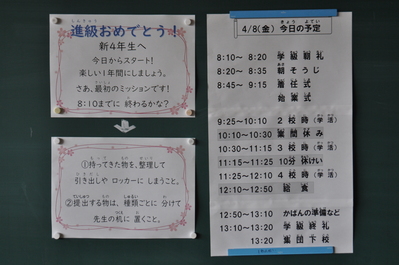 しんきゅう
進級おめでとう！
新４年生へ
今日からスタート！
楽しい１年間にしましょう。
さあ、最初のミッションです！
８:１０までに 終わるかな？
①持ってきた物を、整理して
引き出しや ロッカーに しまうこと。
②提出する物は、種類ごとに 分けて
先生の机に 置くこと。
きょう よてい
4/8(金) 今日の予定
8:10～ 8:20 学級朝礼
8:20～ 8:35 朝そうじ
8:45～ 9:15 着任式
始業式
9:25～10:10 2校時(学活)
10:10～10:30 業間休み
10:30～11:15 3校時(学活)
11:15～11:25 10分休けい
11:25～12:10 4校時(学活)
12:10～12:50 給食
12:50～13:10 かばんの準備など
13:10～13:20 学級終礼
13:20 集団下校